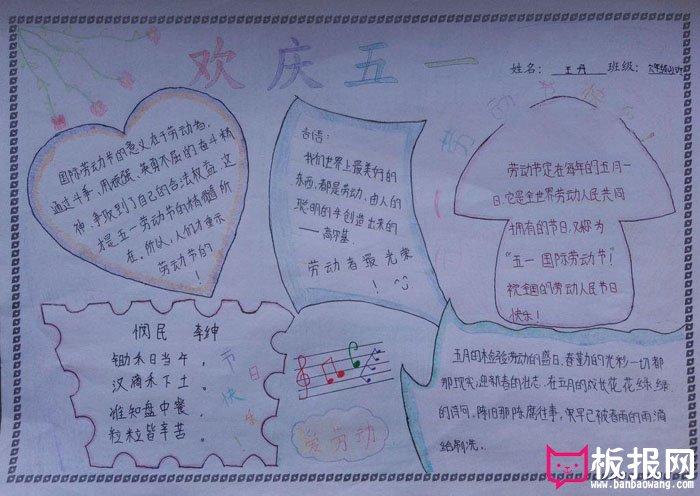 欢庆五一
姓名：王丹 班级：
国际劳动节的意义在于劳动者，
通过斗争，用顽强、英勇不屈的奋斗精
神，争取到了自己的合法权益，这
才是五一劳动节的精髓所
在，所以，人们才重示
劳动节的
！
名语：
我们世界上最美好的
东西，都是劳动，由人的
聪明的手创造出来的
——高尔基.
劳动者最光荣
！
劳动节定在每年的五月一
日，它是全世界劳动人民共同
拥有的节日，又称为
“五一国际劳动节！”
祝全国的劳动人民节日
快乐！
悯民 李绅
锄禾日当午，
汉滴禾下土。
谁知盘中餐，
粒粒皆辛苦。
节日
快乐
爱劳动
五月的检验劳动的盛日，春勤的光彩一切都
那现实，迎新春的壮志，在五月的成长花，花绿绿
的诗句，陈旧那陈腐往事，早早已被春雨的雨滴
给刷洗。
板报网
www.banbaowang.com